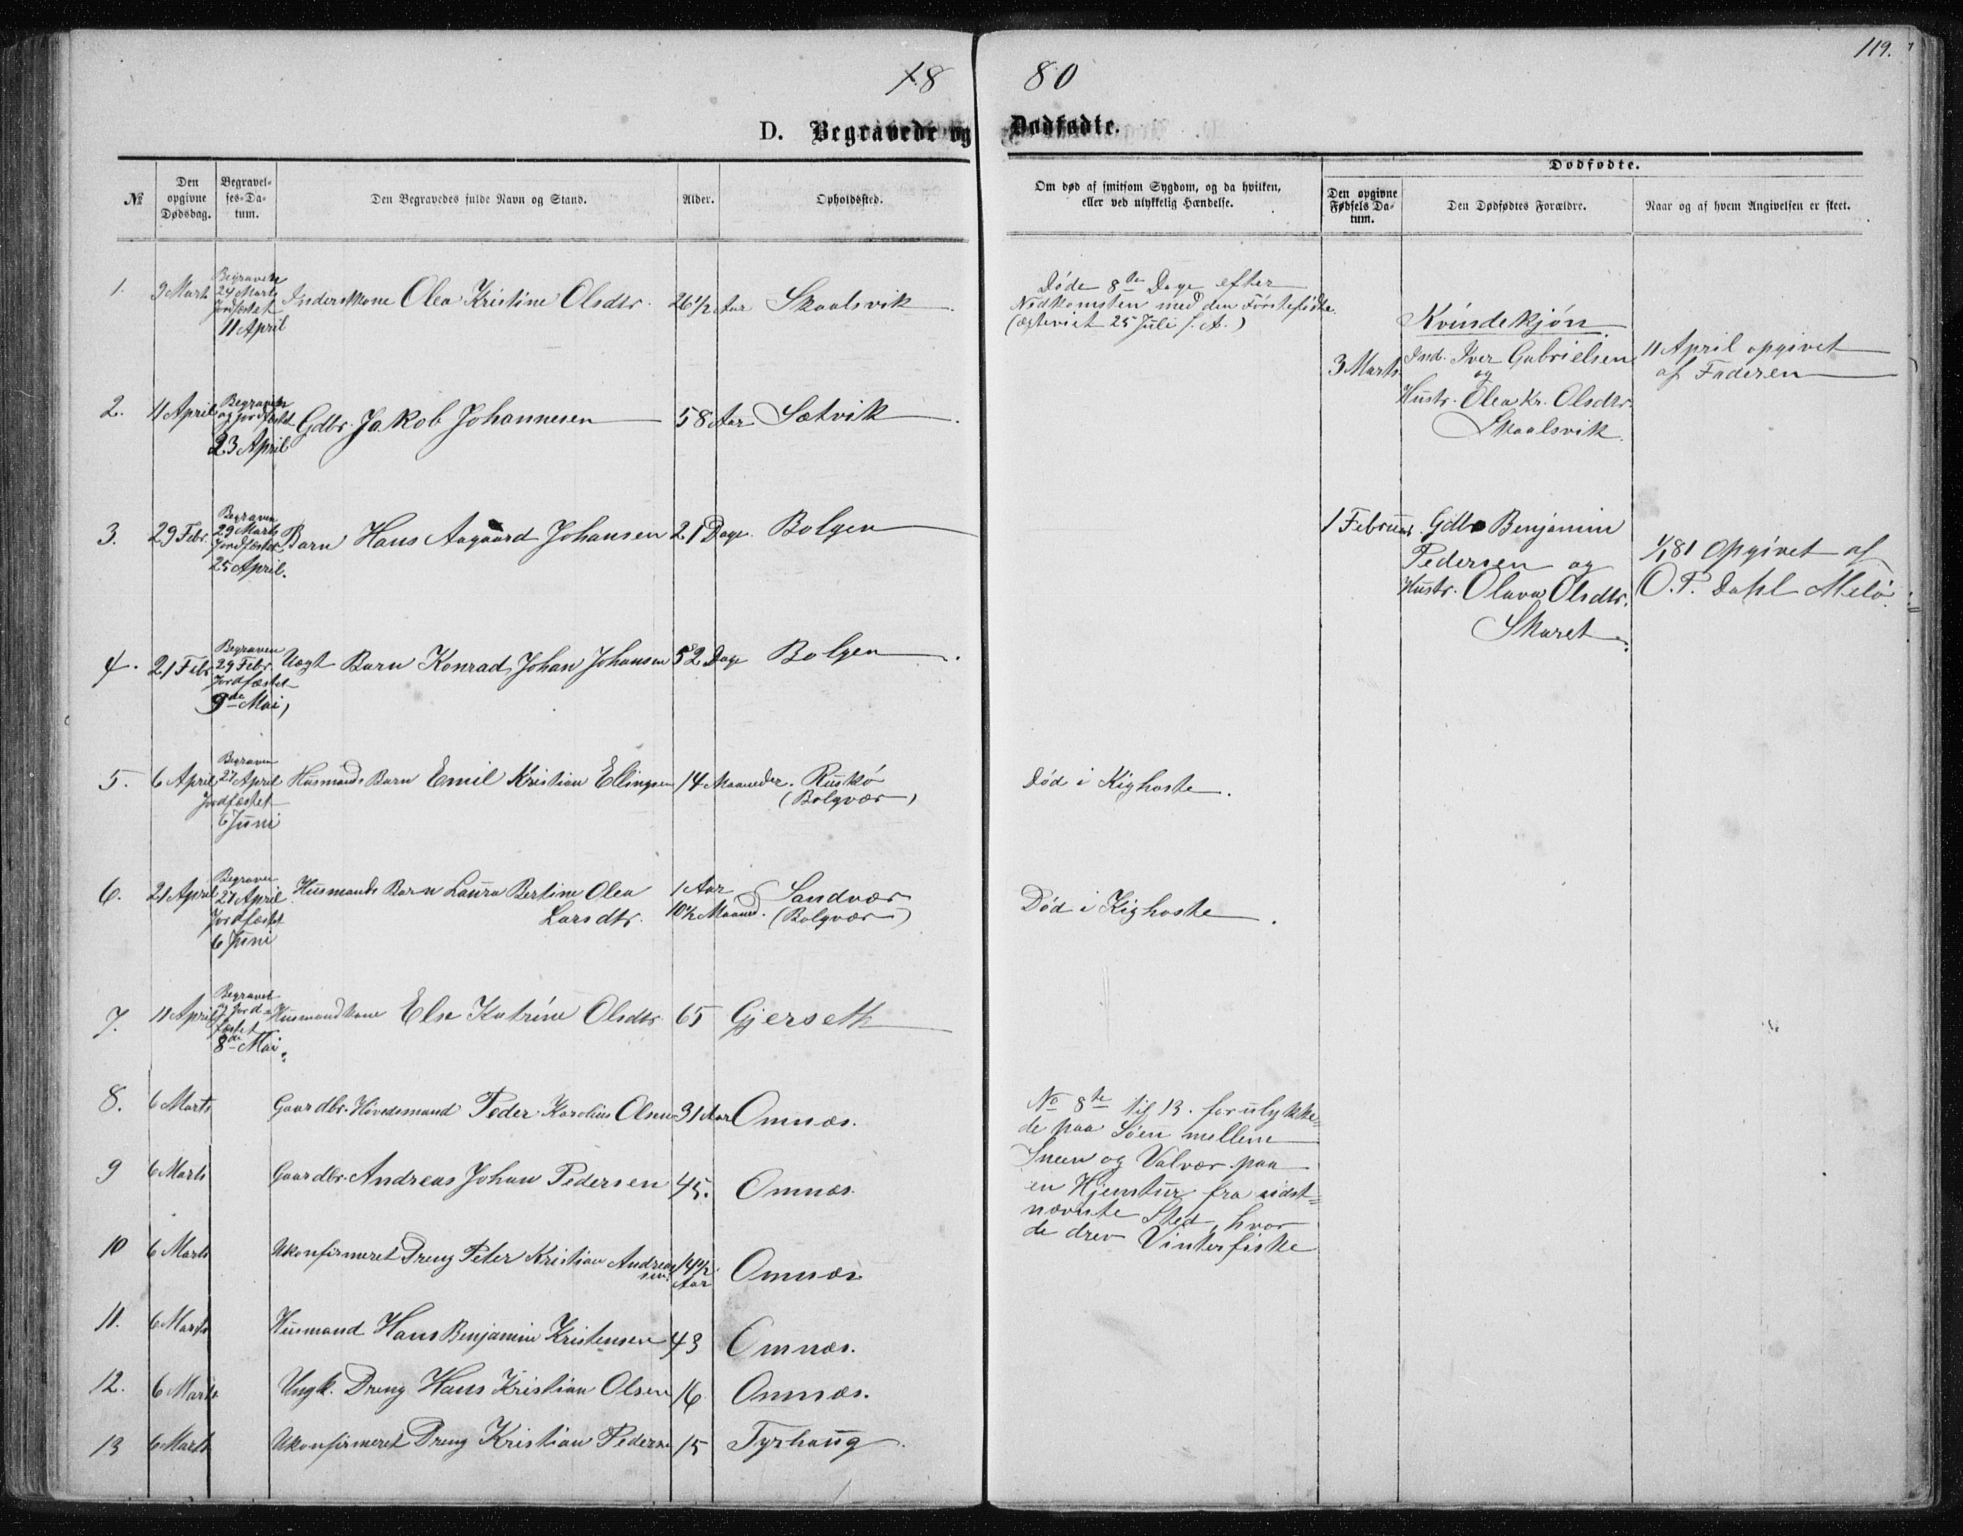 119.
1880
D. Begravede og Dødfødte.
№
Den opgivne Dødsdag.
Begravelses-Datum.
Den Begravedes fulde Navn og Stand.
Alder.
Opholdssted.
Om død af smitsom Sygdom, og da hvilken, eller ved ulykkelig Hændelse.
Dødfødte.
Den opgivne Fødsels Datum.
Den Dødfødtes Forældre.
Naar og af hvem Angivelsen er skeet.
1. 9 Marts
Begraven
24 Marts
Jordfæstet
11 April
Inderstkone Olea Kristine Olsdtr. 26 1/2 Aar Skaalsvik
Døde 8de Dage efter
Nedkomsten med den Førstefødte.
(ægteviet 25 Juli f. A.)
Kvindekjøn
3 Marts
Ind. Iver Gabrielsen
og
Hustr. Olea Kr. Olsdtr.
Skaalsvik.
11 April opgivet
af Faderen
2. 4 April
Begraven
og jordfæstet
23 April
Gdbr. Jakob Johannesen 58 Aar Sætvik
3. 29 Febr.
Begraven
29 Marts
Jordfæstet
25 April.
Barn Hans Aagaard Johansen 21 Dage. Bolgen
1 Februar
Gdbr Benjamin
Pedersen og
Hustr. Olava Olsdtr.
Skaret
1/1 81 Opgivet af
O. P. Dahl Melö.
4. 21 Febr
Begraven
29 Febr.
Jordfæstet
9de Mai,
Uægt Barn Konrad Johan Johansen 52 Dage Bolgen
5. 6 April
Begraven
27 April
Jordfæstet
6 Juni
Husmands Barn Emil Kristian Ellingsen 14 Maaneder. Ruskö
(Bolgvær)
Død i Kighoste.
6. 21 April
Begraven
27 April
Jordfæstet
6 Juni
Husmands Barn Laura Bertine Olea
Larsdtr.
1 Aar
10 1/2 Maaned.
Sandvær
(Bolgvær)
Død i Kighoste.
7. 11 April
Begravet
og Jord-
fæstet
8de Mai.
Husmandkone Else Katrine Olsdtr 65 Gjerseth
8. 6 Marts Gaardbr. Høvedsmand Peder Karolius Olsen 31 Aar Omnæs.
No 8de til 13. forulykke-
de paa Søen mellem
Sneen og Valvær paa
en Hjemtur fra sidst-
nævnte Sted, hvor
de drev Vinterfiske
9 6 Marts Gaardbr. Andreas Johan Pedersen 45. Omnæs.
10 6 Marts Ukonfirmeret Dreng Peter Kristian Andreas
sen. 14 1/2
Aar Omnæs
11. 6 Marts Husmand Hans Benjamin Kristensen 43 Omnæs.
12. 6 Marts Ungk. Dreng Hans Kristian Olsen 16 Omnæs.
13 6 Marts Ukonfirmeret Dreng Kristian Pedersen 15 Tyrhaug.